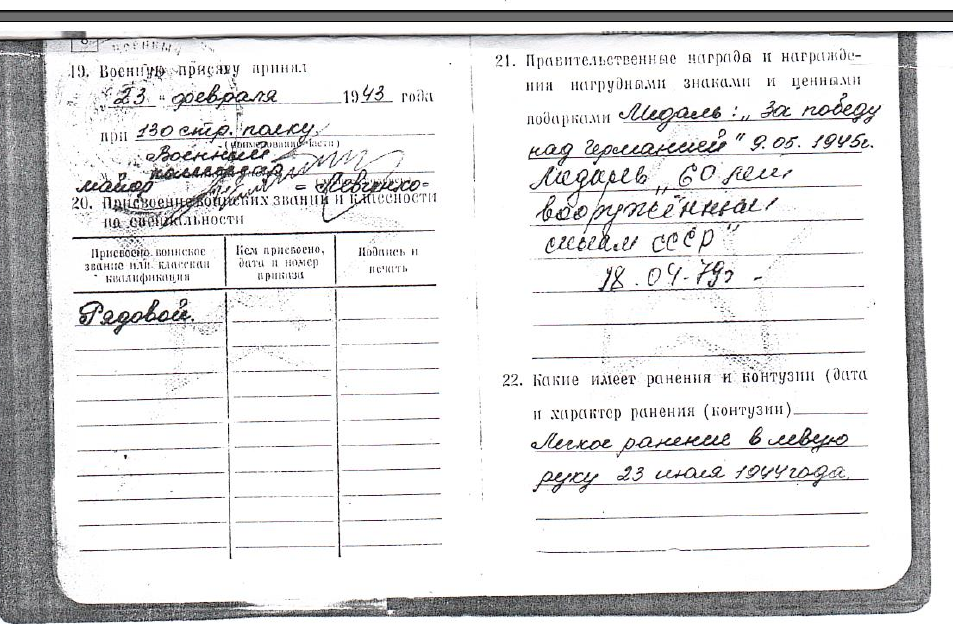 8
ВОЕННЫЙ
19. Военную присягу принял
„23 „ февраля 1943 года
при 130 стр. полку
(наименование части)
Военный
комиссар
майор = Левченко=
20. Присвоение воинских званий и классности
по специальности
Присвоено воинское
звание или классная
квалификация
Кем присвоено,
дата и номер
приказа
Подпись и
печать
Рядовой.
21. Правительственные награды и награжде-
ния нагрудными знаками и ценными
подарками Медаль: „За победу
над Германией" 9.05. 1945г.
„60 лет
вооружённым
силам СССР"
18.04.79г -
22. Какие имеет ранения и контузии (дата
и характер ранения (контузии)
Легкое ранение в левую
руку 23 июля 1944 года.